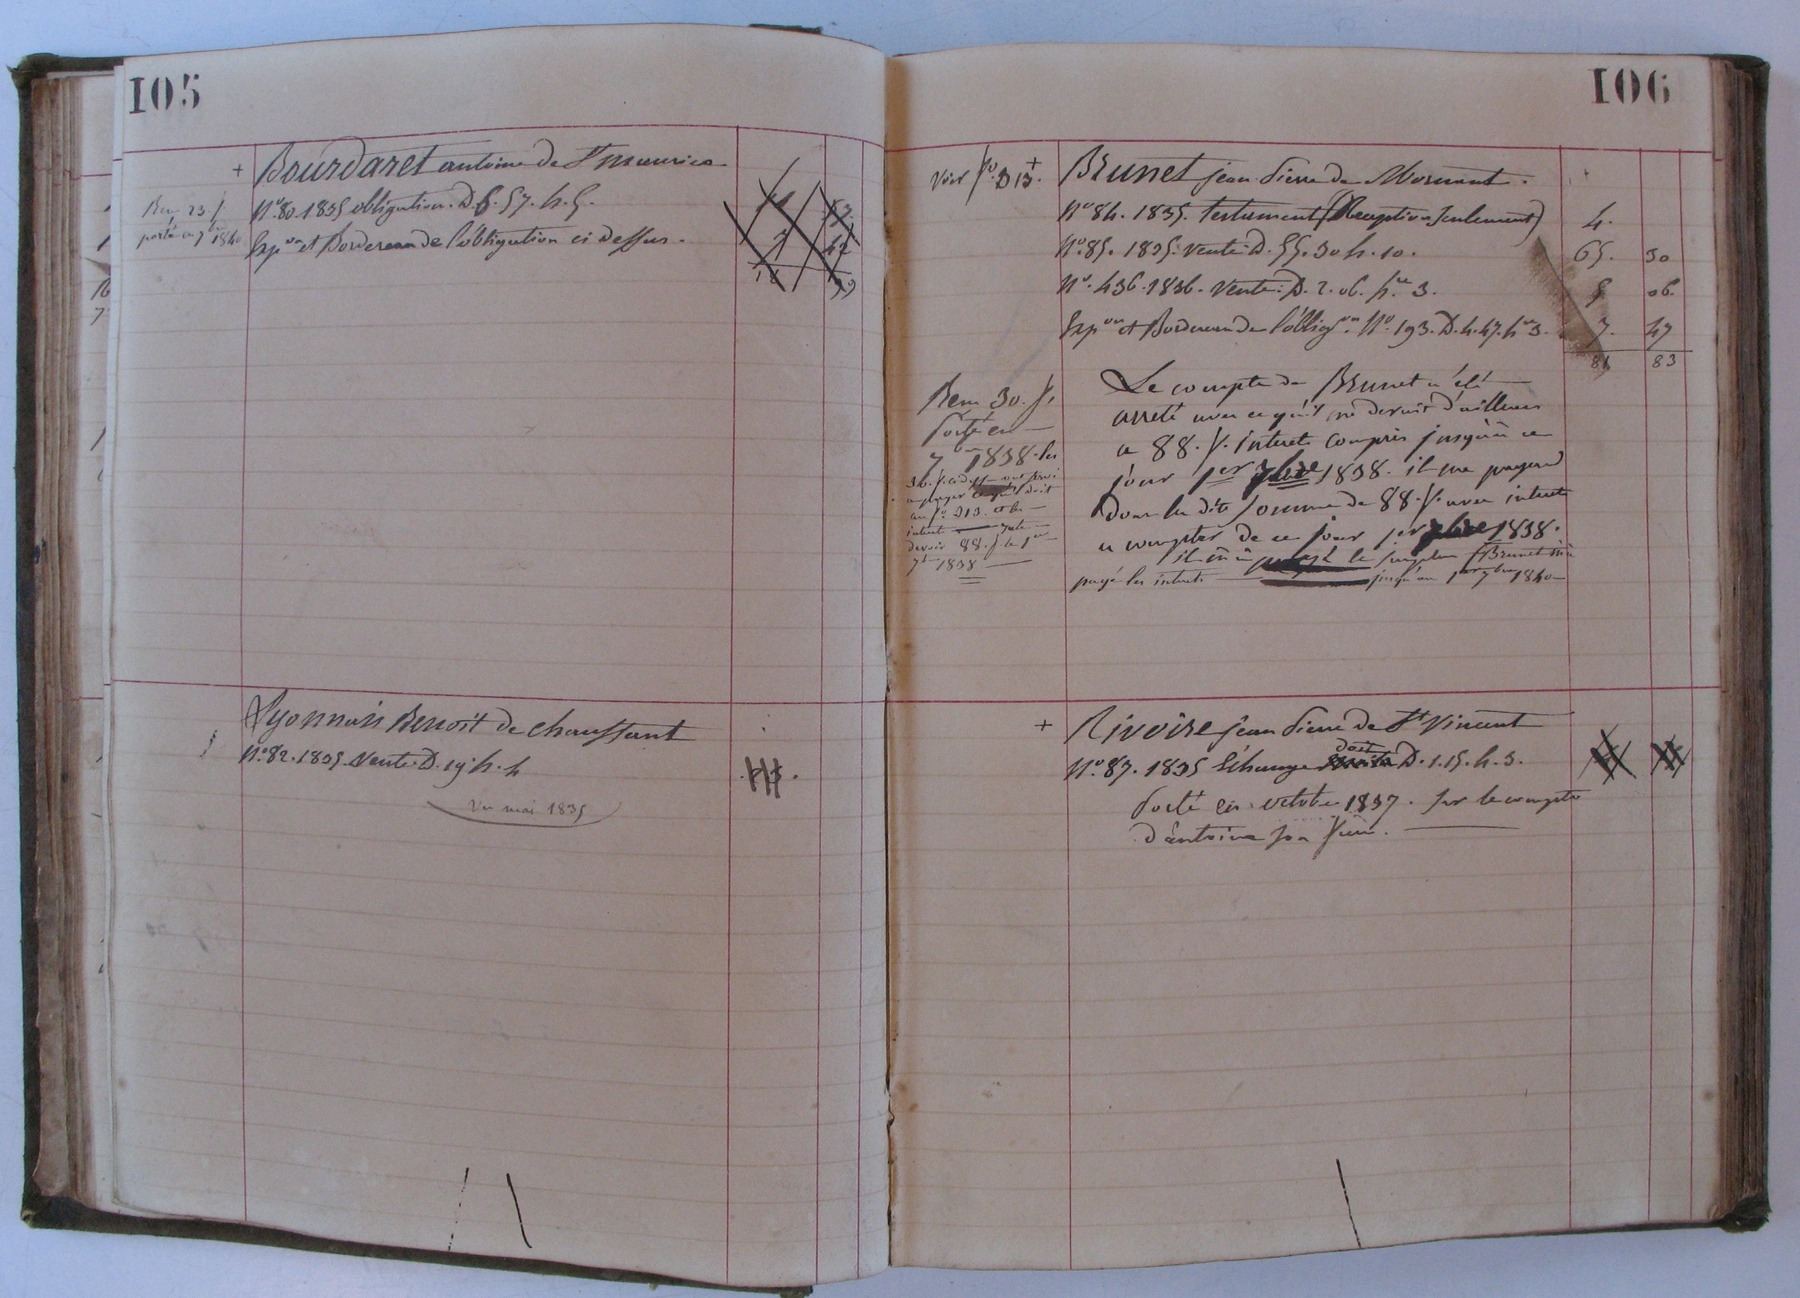 105
+ Bourdaret antoine de St maurice
N° 80. 1835 obligation. D. 6. 57. h. 5.
Reçu 23 f
porté en 7bre 1840
Exp on et Bordereau de l'obligation ci dessus.
Lyonnais Benoit de chaussant
N° 82. 1835 Vente. D. 19. h. 4
Vu mai 1835
106
Voir f° 313. + Brunet jean Pierre de Mornant.
N° 84. 1835. Testament (Reception seulement) 4.
N° 85. 1835. Vente D. 55. 30 h. 10. 65. 30
N° 436. 1836. Vente. D. 2. 06. hre 3. 5 06
Exp on et Bordereau de l'oblig on N° 193. D. 4. 47. hre 3. 7. 47
81 83
Reçu 30 f.
Porté en
7bre 1838. les
au f° 313. et les
interets
devoir 88. f. le 1er
7bre 1838
Le compte de Brunet a été
arreté avec ce qu'il me devoit d'ailleurs
a 88. f. interets compris jusqu'à ce
jour 1er 7bre 1838. il me payera
donc la dite somme de 88 f. avec interet
a compter de ce jour 1er 7bre 1838.
il m'a le Brunet m'a
payé les interets jusqu'au 1er 7bre 1840
+ Rivoire jean Pierre de St Vincent
N° 87. 1835 Echange doit D. 1. 15. h. 3.
Porté en octobre 1837. sur le compte
d'antoine son frère.